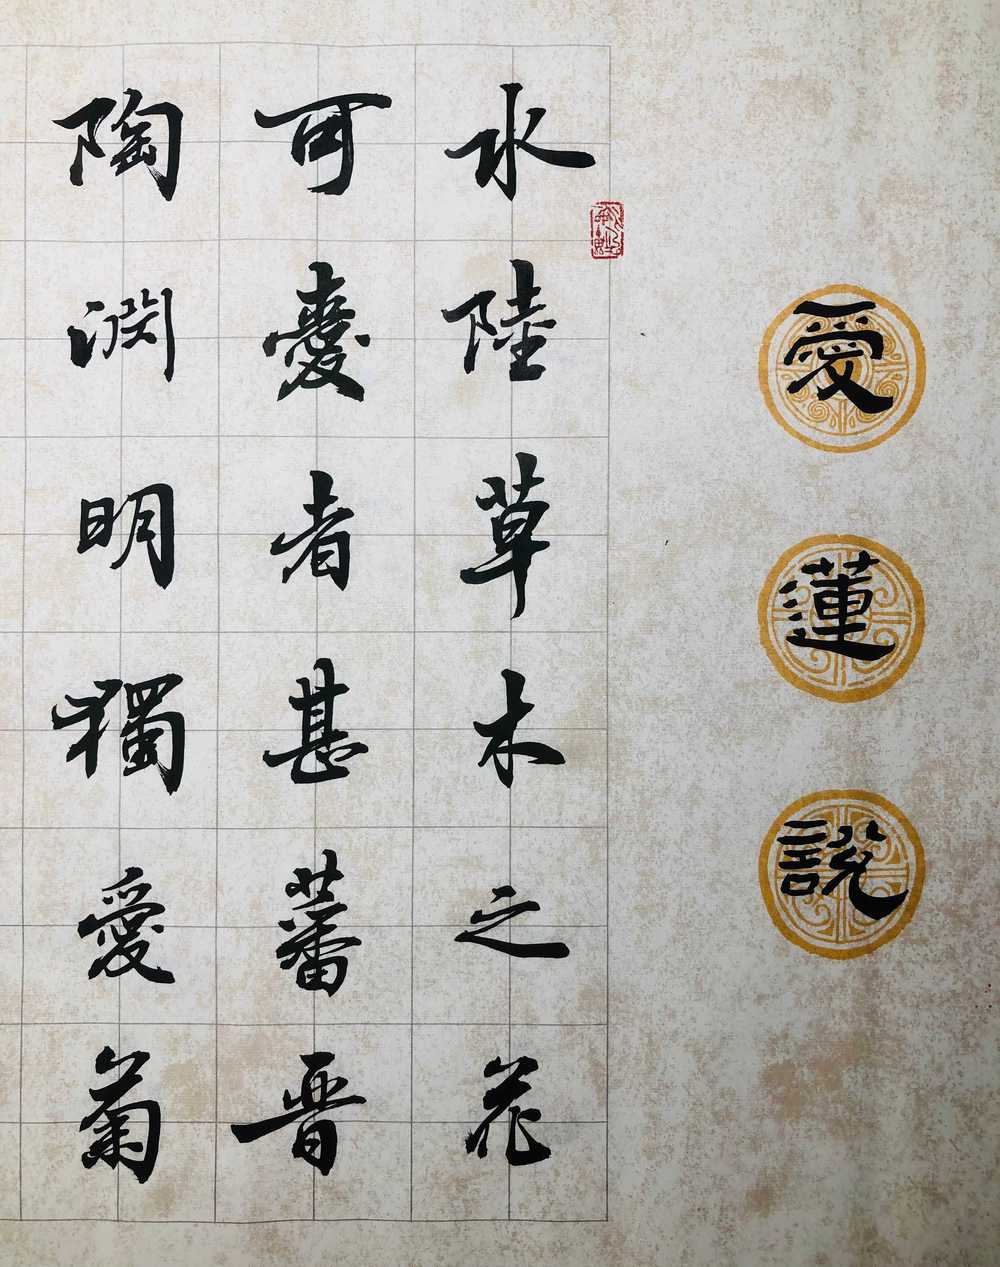 愛蓮說
水陸草木之花
可愛者甚蕃晋
陶渊明獨愛菊